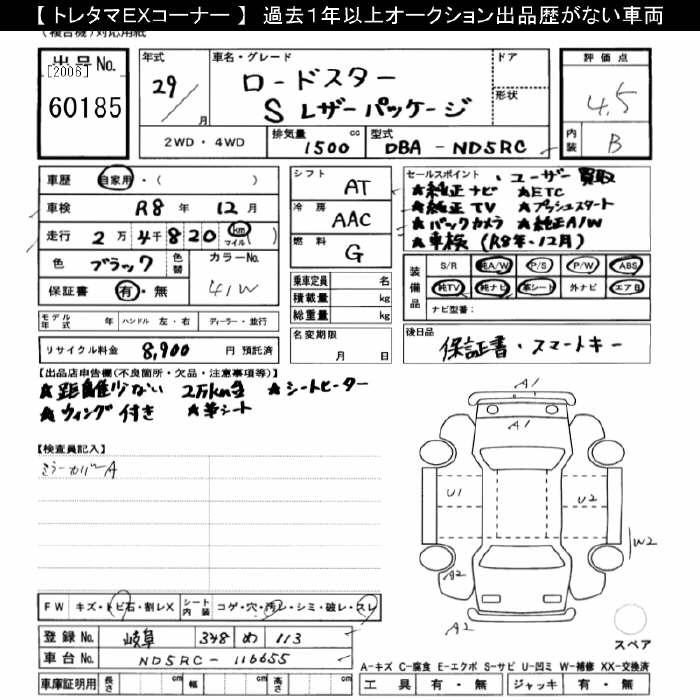 【 トレタマEXコーナー 】 過去１年以上オークション出品歴がない車両
(複合機)対応用紙
出品No.
[2006]
60185
年式
29
月
車名・グレード
ロードスター
S レザーパッケージ
ドア
形状
評価点
4.5
内装
B
2WD・4WD
排気量
1500 cc
型式
DBA - ND5RC
車歴
自家用・( )
車検
R8 年 12 月
走行
2万4千820 km マイル
色
ブラック
色替
カラーNo.
41W
保証書
有・無
シフト
AT
冷房
AAC
燃料
G
乗車定員 名
積載量 kg
総重量 kg
セールスポイント
・ユーザー買取
★純正ナビ ★ETC
★純正TV ★プッシュスタート
★バックカメラ ★純正A/W
★車検 (R8年・12月)
装備品
S/R 純A/W P/S P/W ABS
純TV 純ナビ 革シート 外ナビ エアB
ナビ型番:
モデル年式 年 ハンドル 左・右 ディーラー・並行
名変期限
月 日
リサイクル料金 8,900 円 預託済
後日品
保証書・スマートキー
【出品店申告欄(不良箇所・欠品・注意事項等)】
★距離少ない 2万km台 ★シートヒーター
★ウィング付き ★革シート
【検査員記入】
ミラーカバーA
A1
A1
U1
U2
W2
A2
A2
スペア
FW
キズ・トビ石・割レX
シート内装
コゲ・穴・汚レ・シミ・破レ・スレ
登録No.
岐阜 348 め 113
車台No.
ND5RC - 116655
A-キズ C-腐食 E-エクボ S-サビ U-凹ミ W-補修 XX-交換済
車庫証明用 長さ cm 幅 cm 高さ cm
工具 有・無 ジャッキ 有・無